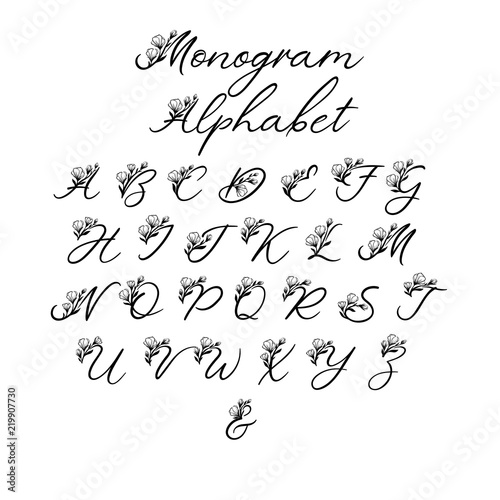 Monogram
Alphabet
A B C D E F G
H I J K L M
N O P Q R S T
U V W X Y Z
&
Adobe Stock | #219907730